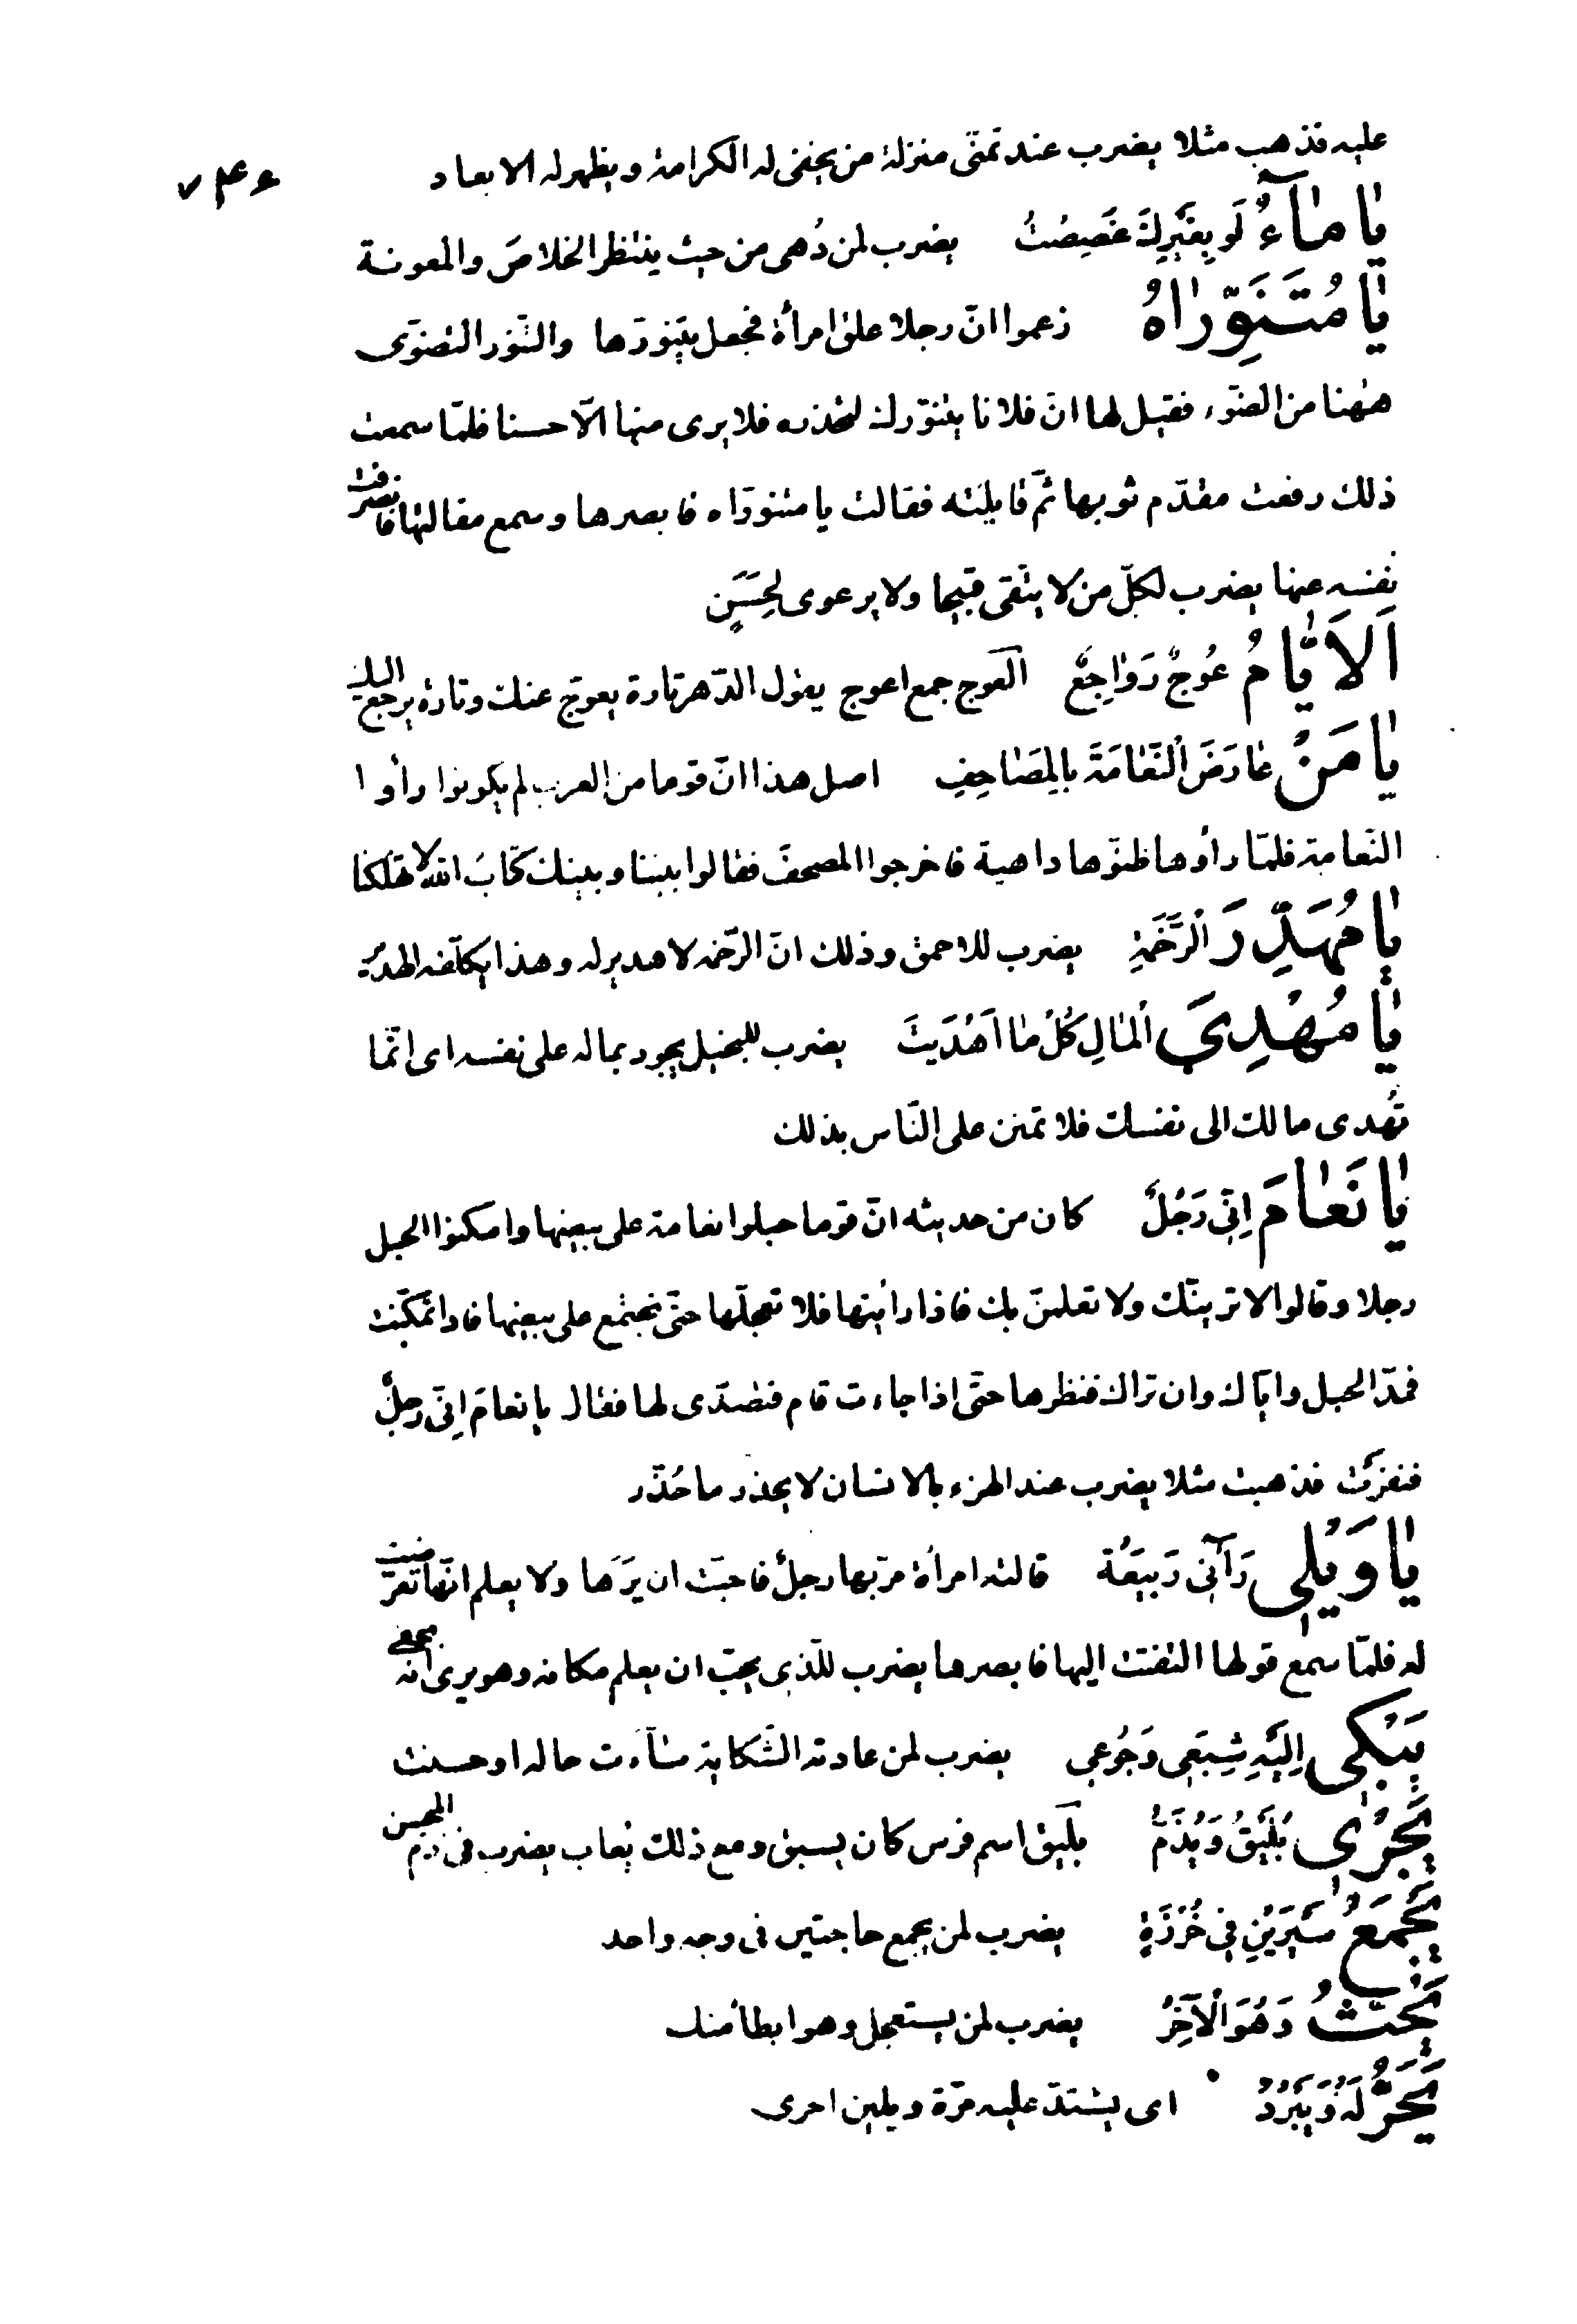 ۷۴۶
عليه فذهب مثلا يضرب عند تمنّى منزلة من يخفى له الكرامة ويظهر له الابعاد
يَا مَآءُ لَو بِغَيْرِكَ غَصِصْتُ يضرب لمن دُهى من حيث ينتظر الخلاصَ والمعونة
يَا مُتَنَوِّرَاهُ زعموا انّ رجلا علق امرأة فجعل يتنوّرها والتّنوّر التضوّى
ههنا من الضوّء فقيل لها انّ فلانا يتنوّرك لتحذريه فلا يرى منها الّا حسنا فلمّا سمعت
ذلك رفعت مقدّم ثوبها ثمّ قابلته فقالت يا متنوّراه فابصرها وسمع مقالتها فانصرفت
نفسه عنها يضرب لكلّ من لا يتّقى قبيحا ولا يرعوى لحَسَنٍ
اَلاَيَّامُ عُوجٌ رَوَاجِعُ العوج جمع اعوج يقول الدّهر تارة يعوجّ عنك وتارة يرجع اليك
يَا مَنْ عَارَضَ اَلنَّعَامَةَ بِالمَصَاحِفِ اصل هذا انّ قوما من العرب لم يكونوا رأوا
النّعامة فلمّا رأوها ظنّوها داهية فاخرجوا المصحفَ فقالوا بيننا وبينك كتابَ الله لا تهلكنا
يَا مُهَدِّرَ اَلرَّخَمَةِ يضرب للاحمق وذلك انّ الرّخمة لا هدير له وهذا يكلّفه الهدير
يَا مُهْدِيَ اَلمَالِ كُلْ مَا اَهْدَيْتَ يضرب للبخيل يجود بماله على نفسه اى انّما
تُهدى مالك الى نفسك فلا تمنن على النّاس بذلك
يَا نَعَامَ اِنِّى رَجُلٌ كان من حديثه انّ قوما حبلوا نعامة على بيضها وامكنوا الحبل
رجلا وقالوا لا ترينّك ولا تعلمنّ بك فاذا رأيتها فلا تعجلّها حتّى تجتمع على بيضها فاذا تمكّنت
فمدّ الحبل وايّاك وان تراك فنظرها حتّى اذا جاءت قام فتصدّى لها فقال يا نعامَ اِنّى رجلٌ
فنفرت فذهبت مثلا يضرب عند الهزء بالانسان لا يحذر ما حُذّر
يَا وَيْلِى رَآنِى رَبِيعَةُ قالته امرأة مرّ بها رجلٌ فاحبّت ان يرَها ولا يعلم انّها تعرّضت
له فلمّا سمع قولها التفت اليها فابصرها يضرب للّذى يحبّ ان يعلم مكانه وهو يرى انّه يخفى
يَبْكِى اِلَيْهِ شِبَعِى وَجُوعِى يضرب لمن عادته الشّكاية سآءت حاله او حسنت
يَجْرِى بُلَيْقُ وَيُذَمُّ بلَيق اسم فرس كان يسبق ومع ذلك يُعاب يضرب فى ذم المحسن
يَجْمَعُ سَيْرَيْنِ فِى خُرْزَةٍ يضرب لمن يجمع حاجتين فى وجه واحد
يَحُثُّ وَهُوَ الْآخِرُ يضرب لمن يستعجل وهو ابطأ منك
يَحَرُّ لَهُ وَيَبْرُدُ اى يشتدّ عليه مرّة ويلين اخرى